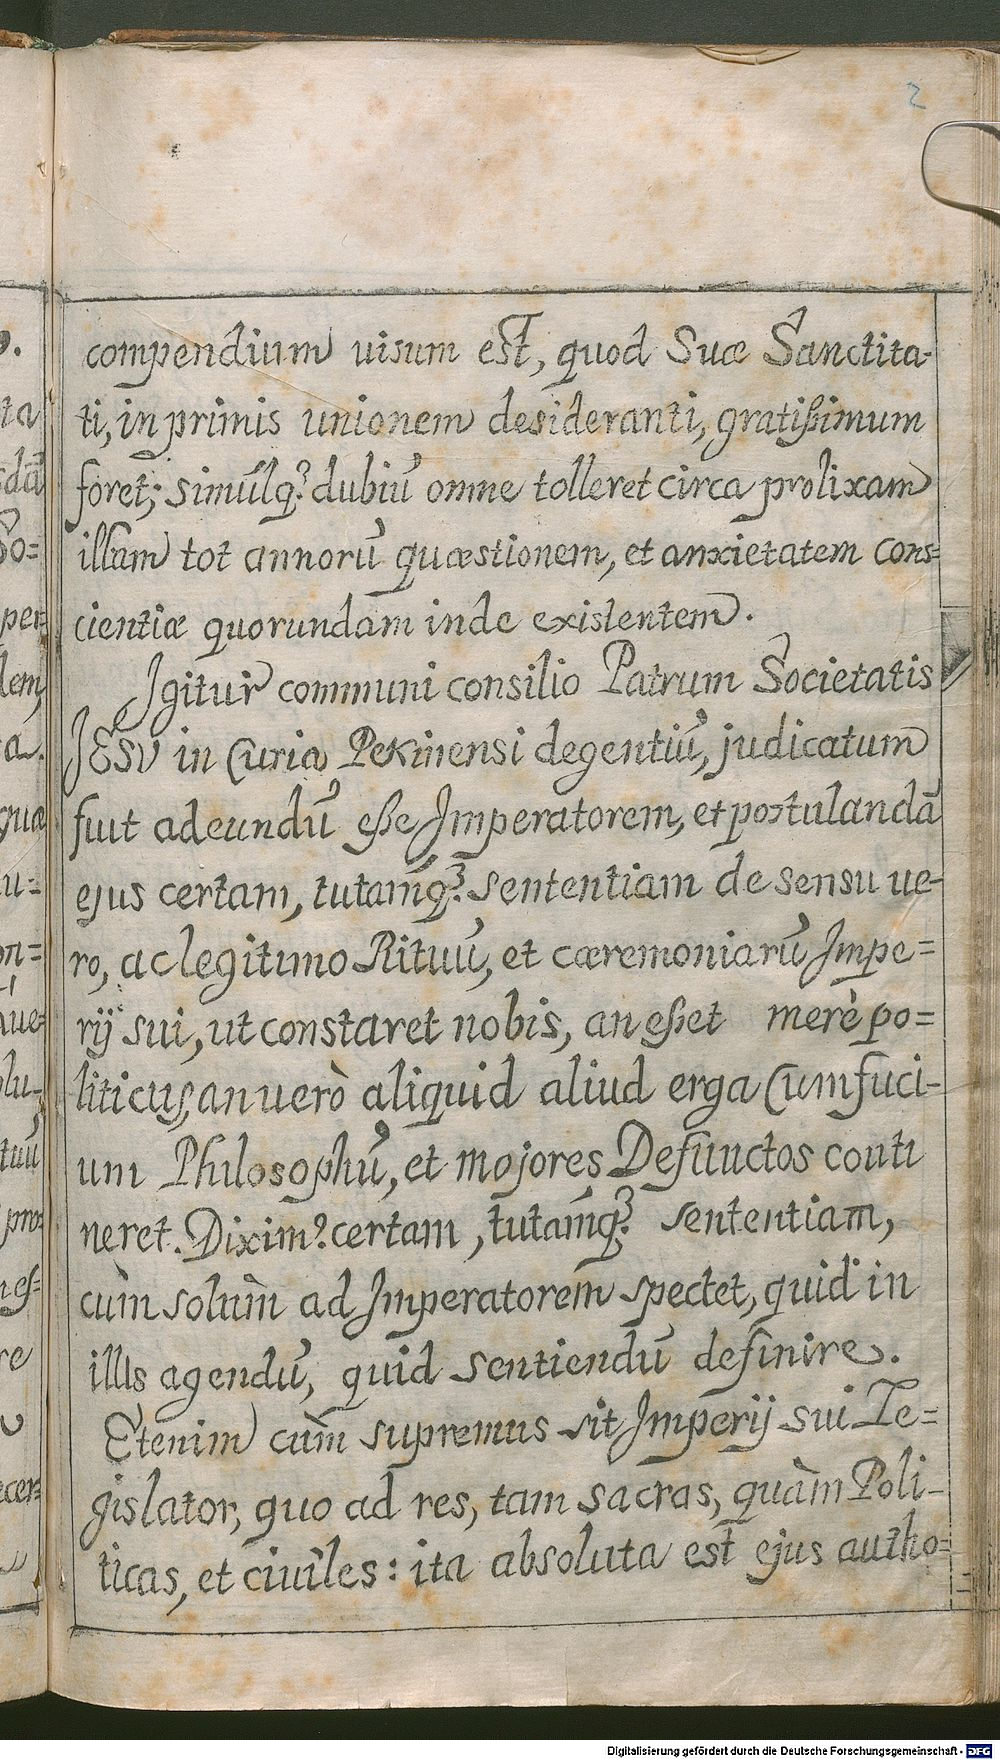 2
compendium visum est, quod Suæ Sanctita-
ti, in primis unionem desideranti, gratißimum
foret; simúlq? dubiú omne tolleret circa prolixam
illam tot annorú quæstionem, et anxietatem cons=
cientiæ quorundam inde existentem.
Igitur communi consilio Patrum Societatis
JESV in Curia Pekinensi degentiú, judicatum
fuit adeundú eße Imperatorem, et postulandā
ejus certam, tutamq? sententiam de sensu ve-
ro, ac legitimo Rituú, et cæremoniarú Impe=
rij sui, ut constaret nobis, an eßet merè po=
liticus, an verò aliquid aliud erga Cumfuci-
um Philosophú, et majores Defunctos conti
neret. Dixim? certam, tutamq? sententiam,
cùm solùm ad Imperatorem spectet, quid in
illis agendú, quid sentiendú definire.
Etenim cùm supremus sit Imperij sui Le=
gislator, quo ad res, tam sacras, quàm Poli-
ticas, et civiles: ita absoluta est ejus autho=
Digitalisierung gefördert durch die Deutsche Forschungsgemeinschaft - DFG